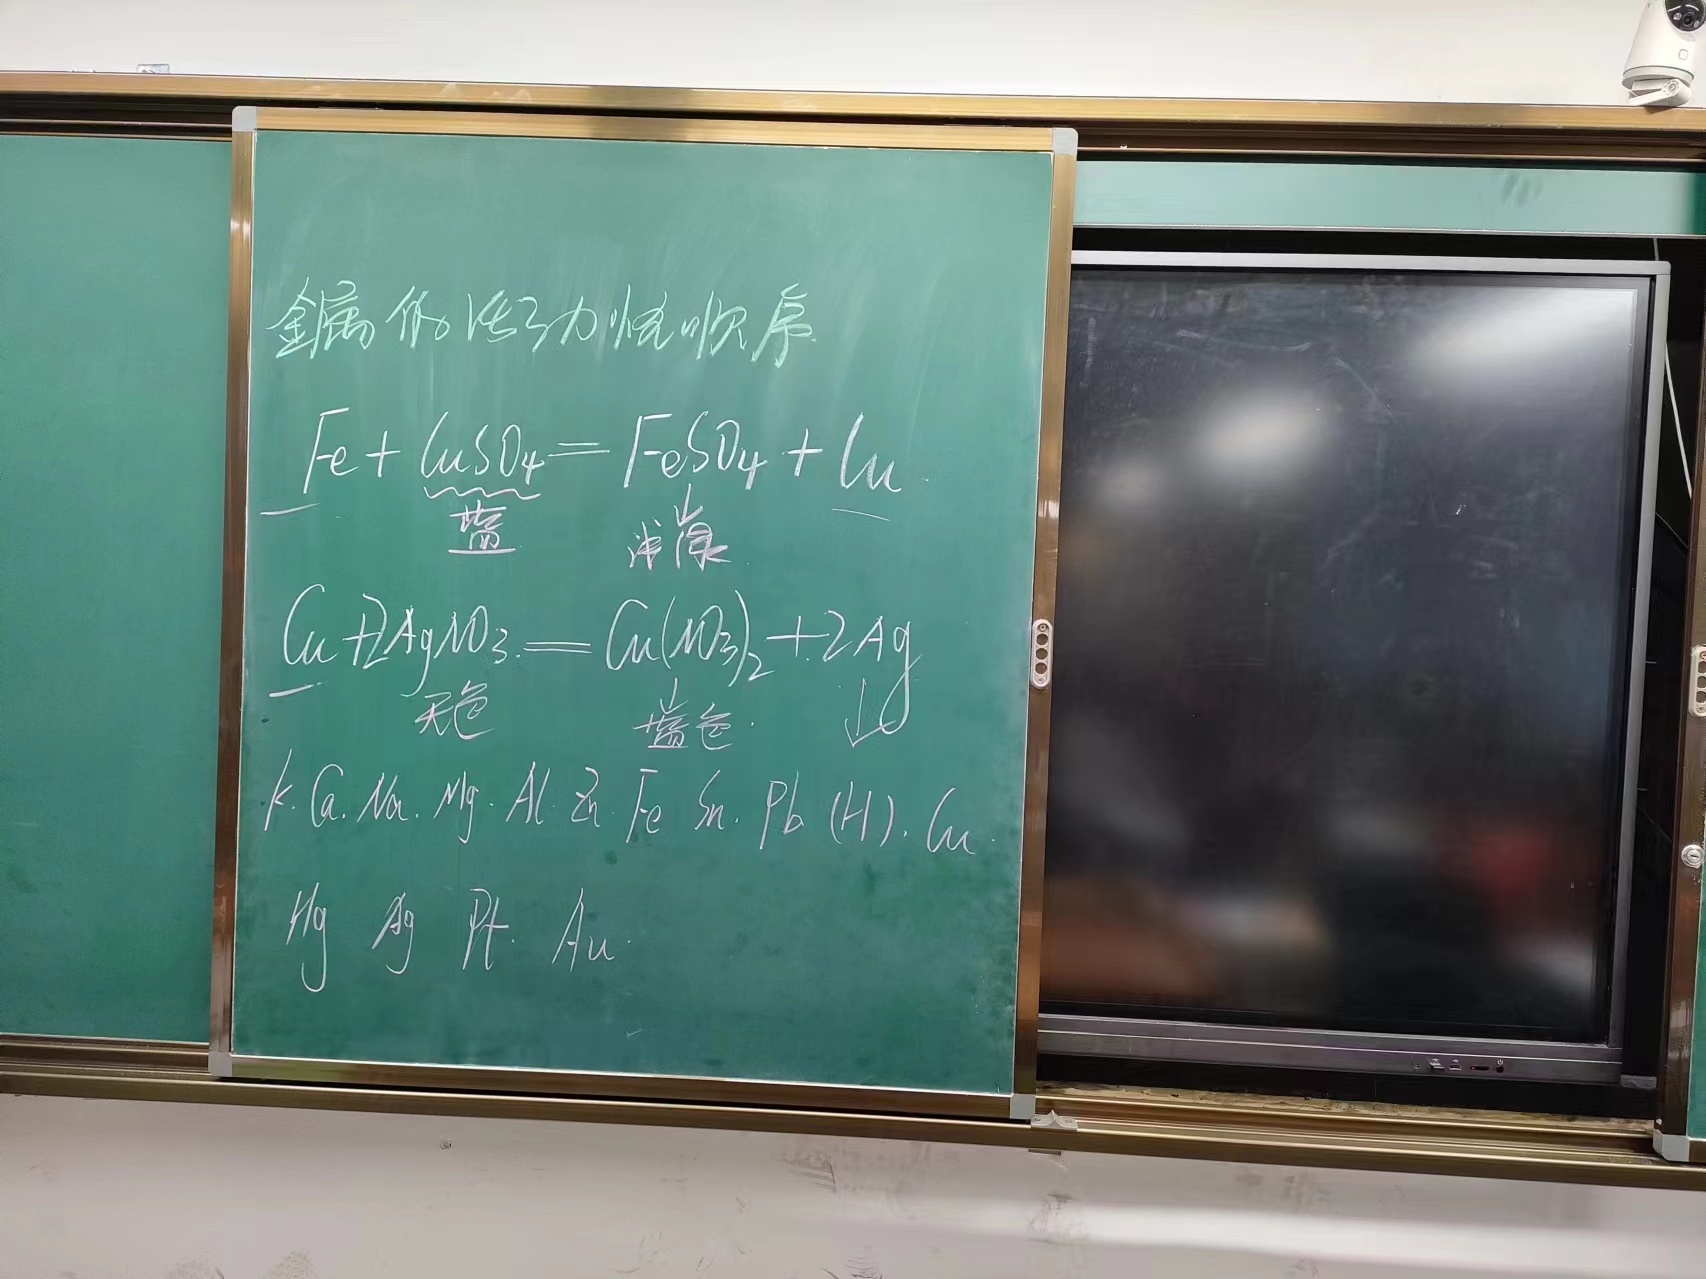 金属的活动性顺序
Fe + CuSO₄ = FeSO₄ + Cu
蓝 浅绿
Cu + 2AgNO₃ = Cu(NO₃)₂ + 2Ag
无色 蓝色
K. Ca. Na. Mg. Al. Zn. Fe Sn. Pb (H). Cu.
Hg Ag Pt. Au.